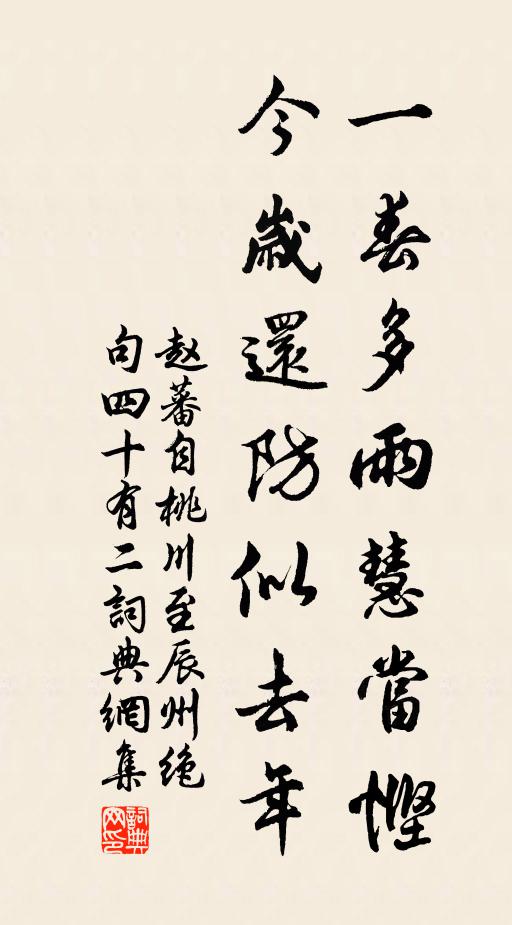 一春多雨慧當慳
今歲還防似去年
赵蕃自桃川至辰州绝
句四十有二詞典網集
詞典網印